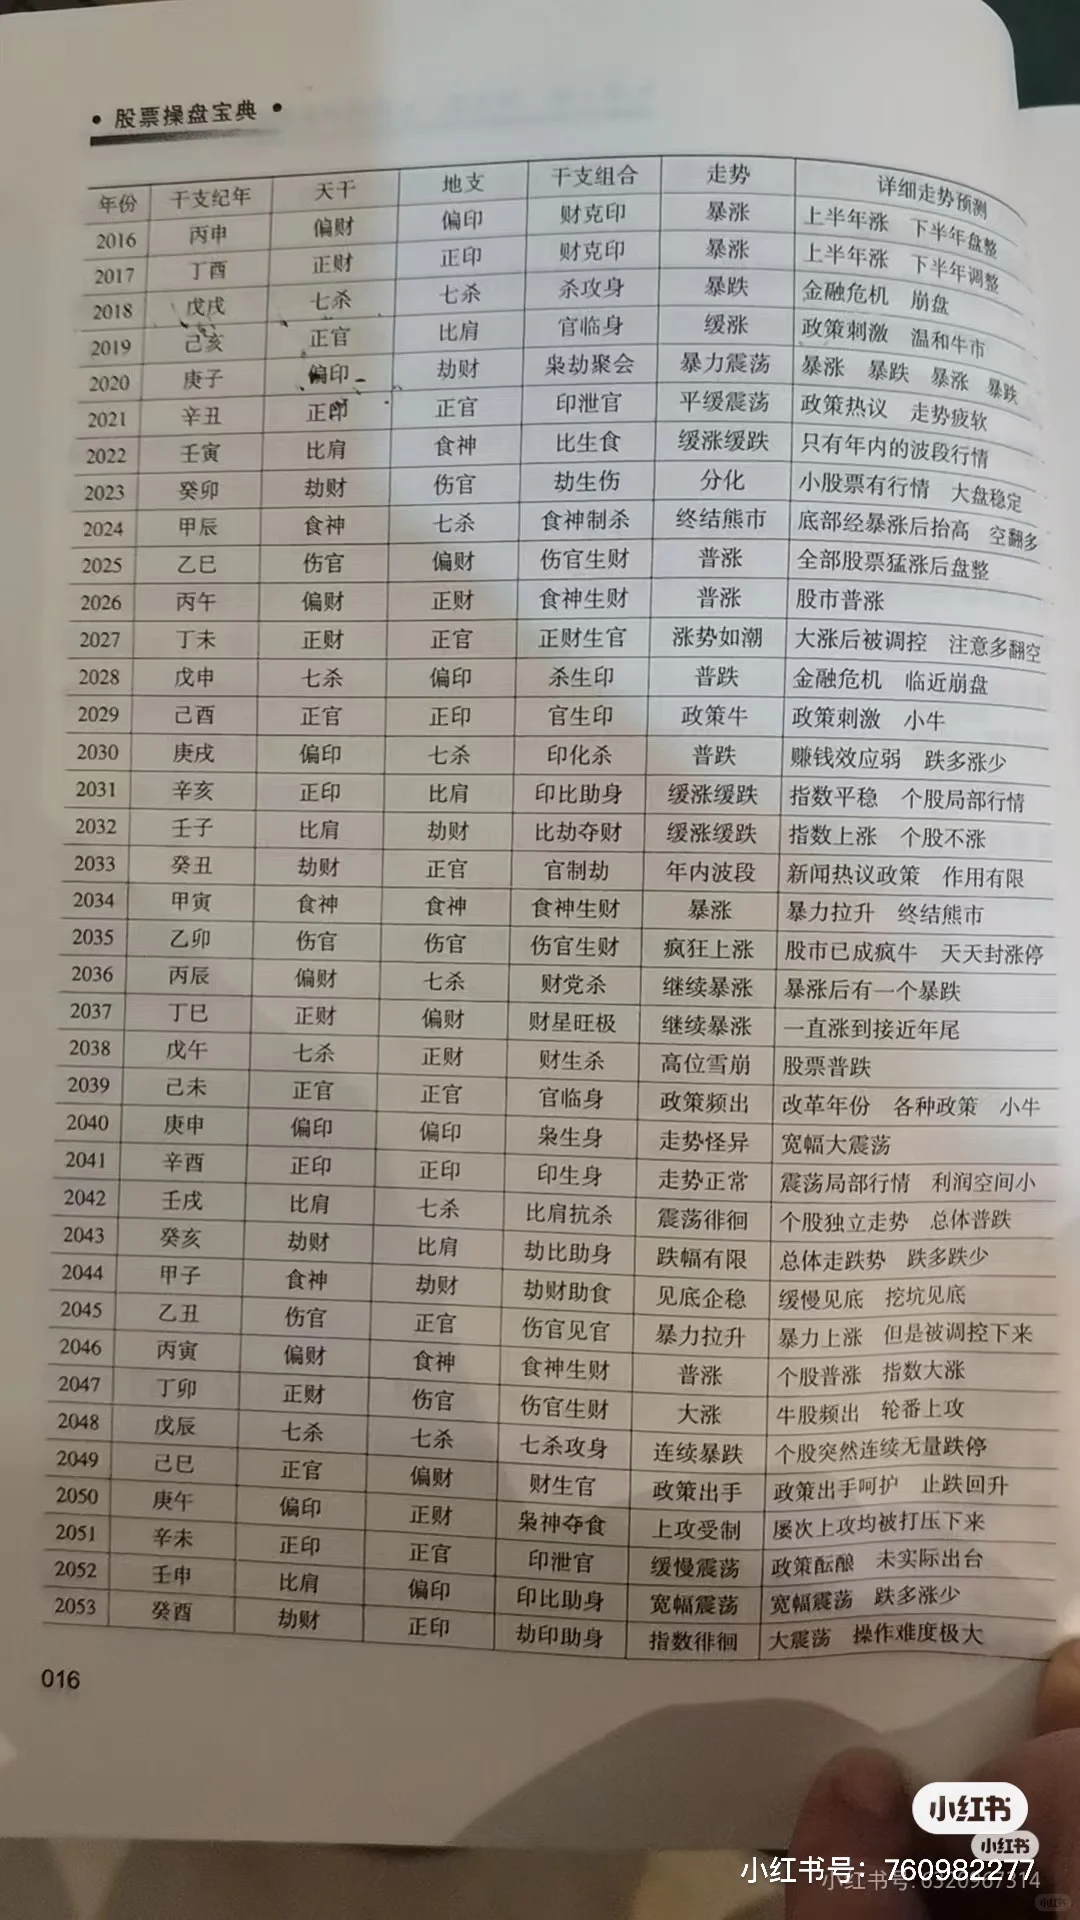 • 股票操盘宝典 •
年份 干支纪年 天干 地支 干支组合 走势 详细走势预测
2016 丙申 偏财 偏印 财克印 暴涨 上半年涨 下半年盘整
2017 丁酉 正财 正印 财克印 暴涨 上半年涨 下半年调整
2018 戊戌 七杀 七杀 杀攻身 暴跌 金融危机 崩盘
2019 己亥 正官 比肩 官临身 缓涨 政策刺激 温和牛市
2020 庚子 偏印 劫财 枭劫聚会 暴力震荡 暴涨 暴跌 暴涨 暴跌
2021 辛丑 正印 正官 印泄官 平缓震荡 政策热议 走势疲软
2022 壬寅 比肩 食神 比生食 缓涨缓跌 只有年内的波段行情
2023 癸卯 劫财 伤官 劫生伤 分化 小股票有行情 大盘稳定
2024 甲辰 食神 七杀 食神制杀 终结熊市 底部经暴涨后抬高 空翻多
2025 乙巳 伤官 偏财 伤官生财 普涨 全部股票猛涨后盘整
2026 丙午 偏财 正财 食神生财 普涨 股市普涨
2027 丁未 正财 正官 正财生官 涨势如潮 大涨后被调控 注意多翻空
2028 戊申 七杀 偏印 杀生印 普跌 金融危机 临近崩盘
2029 己酉 正官 正印 官生印 政策牛 政策刺激 小牛
2030 庚戌 偏印 七杀 印化杀 普跌 赚钱效应弱 跌多涨少
2031 辛亥 正印 比肩 印比助身 缓涨缓跌 指数平稳 个股局部行情
2032 壬子 比肩 劫财 比劫夺财 缓涨缓跌 指数上涨 个股不涨
2033 癸丑 劫财 正官 官制劫 年内波段 新闻热议政策 作用有限
2034 甲寅 食神 食神 食神生财 暴涨 暴力拉升 终结熊市
2035 乙卯 伤官 伤官 伤官生财 疯狂上涨 股市已成疯牛 天天封涨停
2036 丙辰 偏财 七杀 财党杀 继续暴涨 暴涨后有一个暴跌
2037 丁巳 正财 偏财 财星旺极 继续暴涨 一直涨到接近年尾
2038 戊午 七杀 正财 财生杀 高位雪崩 股票普跌
2039 己未 正官 正官 官临身 政策频出 改革年份 各种政策 小牛
2040 庚申 偏印 偏印 枭生身 走势怪异 宽幅大震荡
2041 辛酉 正印 正印 印生身 走势正常 震荡局部行情 利润空间小
2042 壬戌 比肩 七杀 比肩抗杀 震荡徘徊 个股独立走势 总体普跌
2043 癸亥 劫财 比肩 劫比助身 跌幅有限 总体走跌势 跌多跌少
2044 甲子 食神 劫财 劫财助食 见底企稳 缓慢见底 挖坑见底
2045 乙丑 伤官 正官 伤官见官 暴力拉升 暴力上涨 但是被调控下来
2046 丙寅 偏财 食神 食神生财 普涨 个股普涨 指数大涨
2047 丁卯 正财 伤官 伤官生财 大涨 牛股频出 轮番上攻
2048 戊辰 七杀 七杀 七杀攻身 连续暴跌 个股突然连续无量跌停
2049 己巳 正官 偏财 财生官 政策出手 政策出手呵护 止跌回升
2050 庚午 偏印 正财 枭神夺食 上攻受制 屡次上攻均被打压下来
2051 辛未 正印 正官 印泄官 缓慢震荡 政策酝酿 未实际出台
2052 壬申 比肩 偏印 印比助身 宽幅震荡 宽幅震荡 跌多涨少
2053 癸酉 劫财 正印 劫印助身 指数徘徊 大震荡 操作难度极大
016
小红书
小红书
小红书号：760982277
小红书